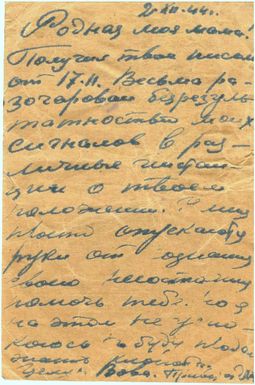 2 XII-44г.
Родная моя мама!
Получил твое письмо
от 17.11. Весьма ра-
зочарован безрезуль-
татностью моих
сигналов в раз-
личные инстан-
ции о твоем
положении. У меня
просто опускаются
руки от сознания
своего бессилия
помочь тебе. Но я
на этом не успо-
коюсь и буду
Целую Вова.